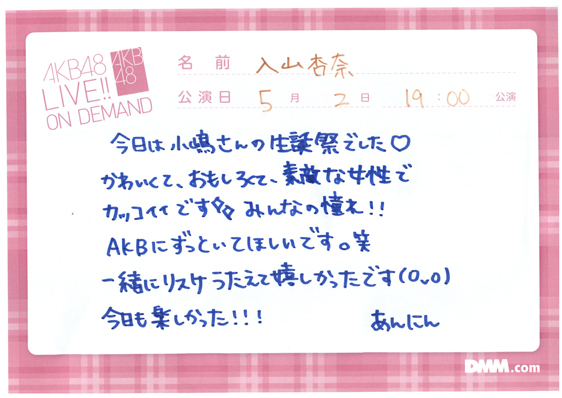 AKB48
LIVE!!
ON DEMAND
AKB
48
名前 入山杏奈
公演日 5月 2日 19:00 公演
今日は小嶋さんの生誕祭でした♡
かわいくて、おもしろくて、素敵な女性で
カッコイイです みんなの憧れ!!
AKBにずっといてほしいです。笑
一緒にリスケうたえて嬉しかったです(0ᴗ0)
今日も楽しかった!!!
あんにん
DMM.com